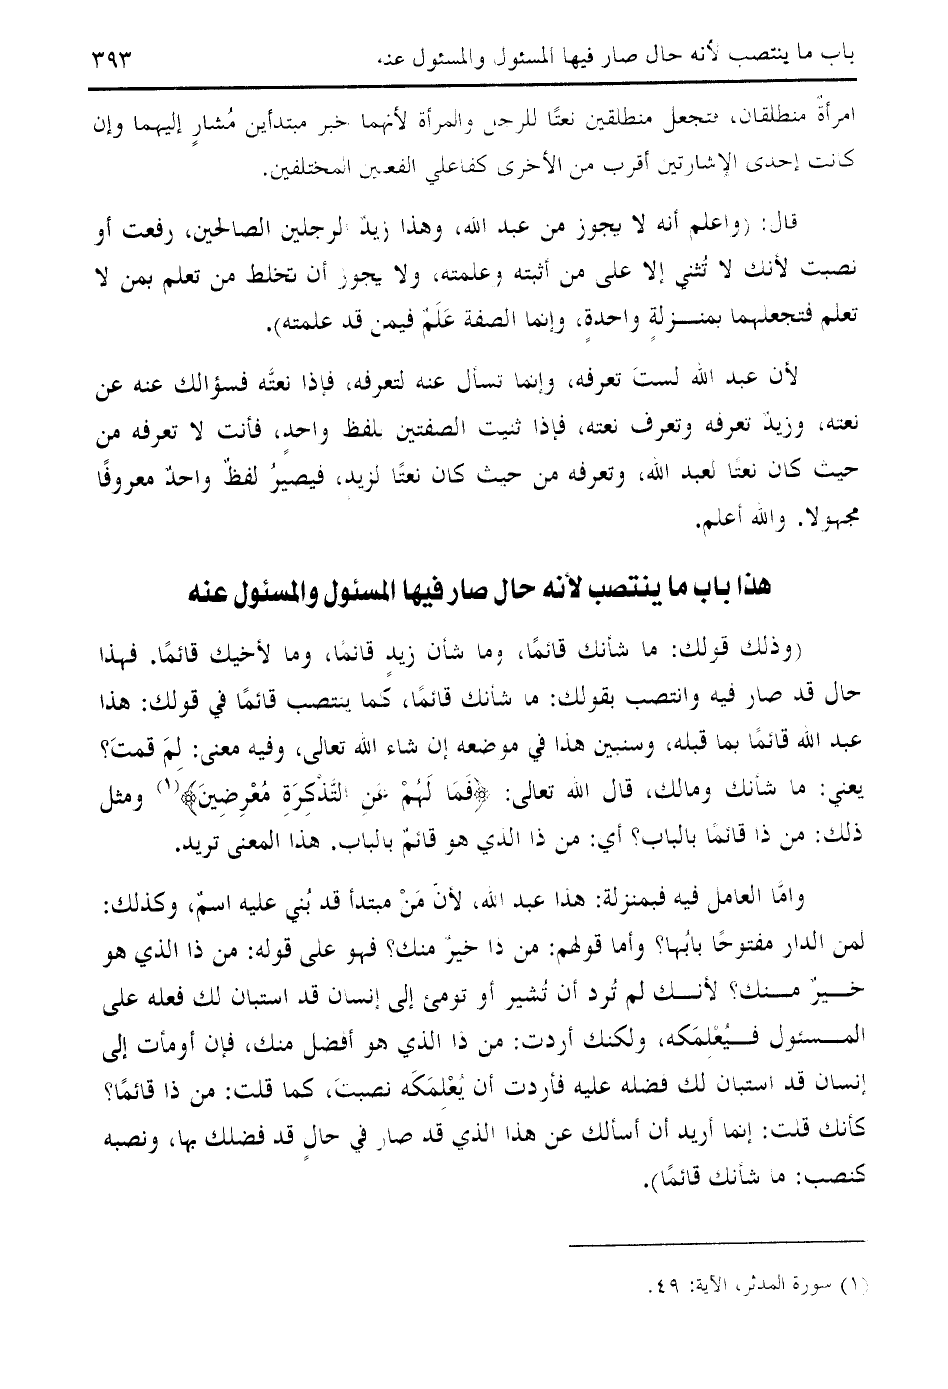 باب ما ينتصب لأنه حال صار فيها المسئول والمسئول عنه ٣٩٣
امرأةٌ منطلقان، فتجعل منطلقين نعتًا للرجل والمرأة لأنهما خبر مبتدأين مُشارٍ إليهما وإن
كانت إحدى الإشارتين أقرب من الأخرى كفاعلي الفعلين المختلفين.
قال: (واعلم أنه لا يجوز من عبد الله، وهذا زيدٌ الرجلين الصالحين، رفعت أو
نصبت لأنك لا تُثني إلا على من أثبته وعلمته، ولا يجوز أن تخلط من تعلم بمن لا
تعلم فتجعلهما بمنـزلةٍ واحدةٍ، وإنما الصفة عَلَمٌ فيمن قد علمته).
لأن عبد الله لستَ تعرفه، وإنما تسأل عنه لتعرفه، فإذا نعتَّه فسؤالك عنه عن
نعته، وزيدٌ تعرفه وتعرف نعته، فإذا ثنيت الصفتين بلفظ واحدٍ، فأنت لا تعرفه من
حيث كان نعتًا لعبد الله، وتعرفه من حيث كان نعتًا لزيد، فيصيرُ لفظٌ واحدٌ معروفًا
مجهولا. والله أعلم.
هذا باب ما ينتصب لأنه حال صار فيها المسئول والمسئول عنه
(وذلك قولك: ما شأنك قائمًا، وما شأن زيدٍ قائمًا، وما لأخيك قائمًا. فهذا
حال قد صار فيه وانتصب بقولك: ما شأنك قائمًا، كما ينتصب قائمًا في قولك: هذا
عبد الله قائمًا بما قبله، وسنبين هذا في موضعه إن شاء الله تعالى، وفيه معنى: لِمَ قمتَ؟
يعني: ما شأنك ومالك، قال الله تعالى: ﴿فَمَا لَهُمْ عَنِ التَّذْكِرَةِ مُعْرِضِينَ﴾(١) ومثل
ذلك: من ذا قائمًا بالباب؟ أي: من ذا الذي هو قائمٌ بالباب. هذا المعنى تريد.
وامَّا العامل فيه فبمنزلة: هذا عبد الله، لأنّ مَنْ مبتدأ قد بُني عليه اسمٌ، وكذلك:
لمن الدار مفتوحًا بابُها؟ وأما قولهم: من ذا خيرٌ منك؟ فهو على قوله: من ذا الذي هو
خـــيرٌ مـــنك؟ لأنـــك لم تُرد أن تُشير أو تومئ إلى إنسان قد استبان لك فعله على
المـــسئول فـــيُعْلمَكه، ولكنك أردت: من ذا الذي هو أفضل منك، فإن أومأت إلى
إنسان قد استبان لك فضله عليه فأردت أن يُعْلمَكَه نصبتَ، كما قلت: من ذا قائمًا؟
كأنك قلت: إنما أريد أن أسألك عن هذا الذي قد صار في حالٍ قد فضلك بها، ونصبه
كنصب: ما شأنك قائمًا).
(١) سورة المدثر، الآية: ٤٩.